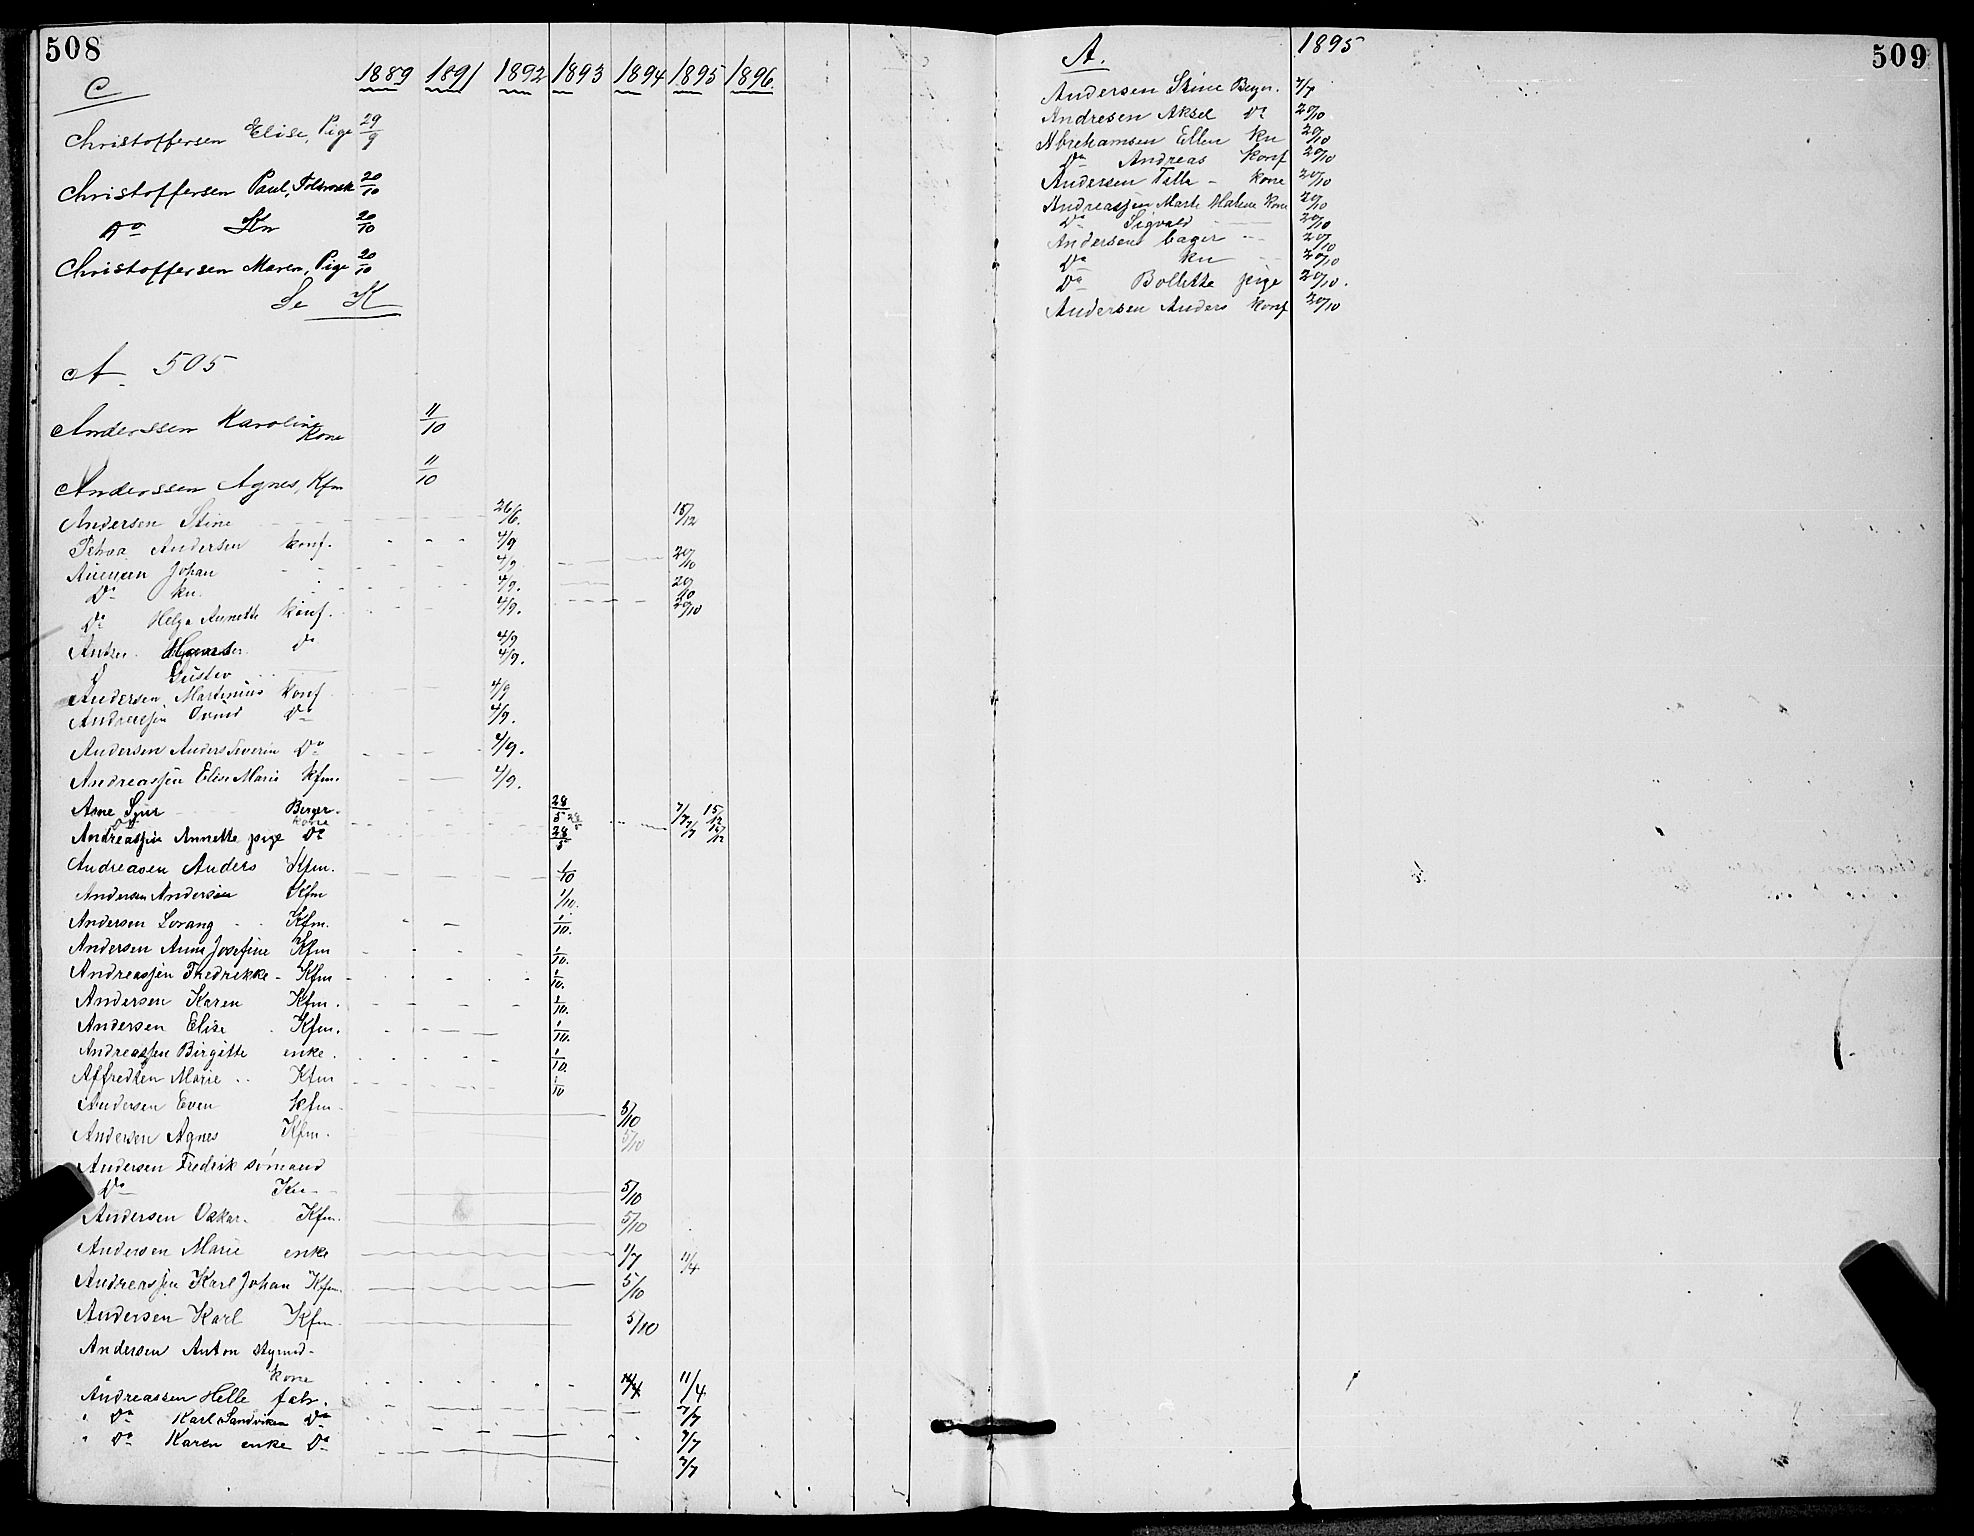 508
C 1889 1891 1892 1893 1894 1895 1896.
Christoffersen Elise, Pige 29/9
Christoffersen Paul, 20/10
Do Kn 20/10
Christoffersen Maren, Pige 20/10
Se K
A. 505
Anderssen Karoline Kone 11/10
Anderssen Agnes, Kfm 11/10
Andersen Stine 26/6. 15/12
Andersen konf. 4/9
Johan 4/9 20/10
Do kn. 4/9. 20/10
Do Helga Annette konf. 4/9. 20/10
Do 4/9
Gustav 4/9.
Andersen Martinius konf 4/9
Andreassen Do 4/9.
Andersen Anders Severin Do 4/9.
Andreassen Elise Marie Kfm. 4/9.
Arne Sjur Berger. 28/5 7/7 15/12
kone 28/5 7/7 15/12
Andreassen Annette pige Do 28/5
Andreasen Anders Kfm. 1/10
Andersen Andersine Kfm 1/10.
Andersen Lorang Kfm. 1/10.
Andersen Anna Josefine Kfm 1/10.
Andreassen Fredrikke - Kfm 1/10.
Andersen Karen Kfm. 1/10.
Andersen Elise Kfm. 1/10.
Andreassen Birgitte enke. 1/10.
Marie .. Kfm 1/10
Andersen Even Kfm 5/10
Andersen Agnes Kfm. 5/10
Andersen Fredrik sømand
Do Kn 5/10
Andersen Oskar. Kfm. 5/10
Andersen Marie enke 11/7 11/4
Andreassen Karl Johan Kfm. 5/10
Andersen Karl Kfm. 5/10
Andersen Anton styrmd.
kone 11/4
Andreassen Helle fabr. 7/7
" Do Karl Sandviken Do 7/7
" Do Karen enke Do 7/7
A. 1895 509
Andersen Stine Berger. 7/7
Andresen Aksel Do 20/10
Abrehamsen Ellen kn 20/10
Do Andreas konf 20/10
Andersen Talla - kone 20/10
Andreassen Marte Malene kone 20/10
Do Sigvald 20/10
Andersen bager 20/10
Do kn 20/10
Do Bollette pige 20/10.
Andersen Anders konf 20/10